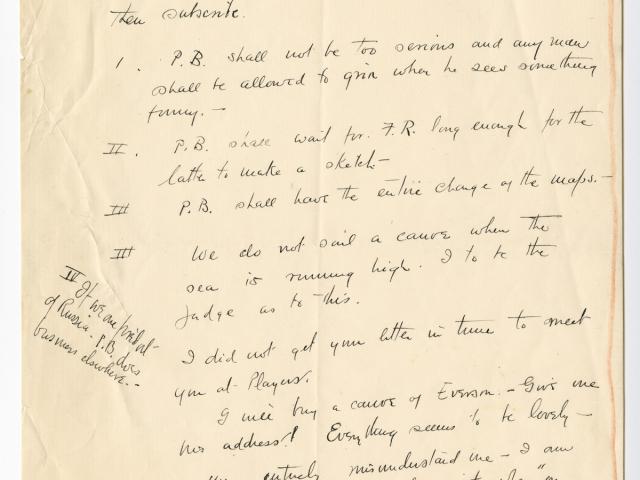 then subscribe.
I. P.B. shall not be too serious and any man
shall be allowed to grin when he sees something
funny. –
II. P.B. shall wait for F.R. long enough for the
latter to make a sketch –
III P.B. shall have the entire charge of the maps. –
III We do not sail a canoe when the
sea is running high. I to be the
judge as to this.
IV If we
of Russia. P.B. does
business elsewhere. –
I did not get your letter in time to meet
you at Players.
I will buy a canoe of Everson. – Give me
his address! Everything seems to be lovely –
entirely misunderstand me – I am